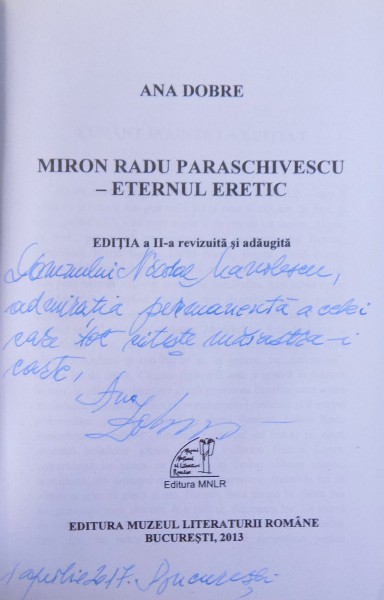 ANA DOBRE
MIRON RADU PARASCHIVESCU
– ETERNUL ERETIC
EDIȚIA a II-a revizuită și adăugită
Domnului Nicolae Manolescu,
admirația permanentă a celei
care tot citește măiastra-i
carte,
Ana
Dobre
Muzeul
Național
al Literaturii
Române
Editura MNLR
EDITURA MUZEUL LITERATURII ROMÂNE
BUCUREȘTI, 2013
1 aprilie 2017. București